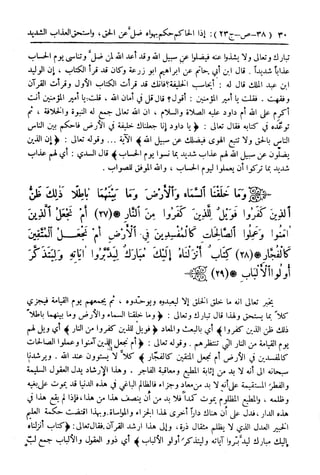 ٣٠ (٣٨-ص-ج٢٣) : إذا الحاكم حكم بهواه ضل عن الحق، واستحق العذاب الشديد
تبارك وتعالى ولا يعدلوا عنه فيضلوا عن سبيل الله وقد أعد الله لمن ضل وتناسى يوم الحساب
عذاباً شديداً . قال ابن أبي حاتم عن ابراهيم أبو زرعة وكان قد قرأ الكتاب ، إن الوليد
ابن عبد الملك قال له : أيحاسب الخليفة؟ فانك قد قرأت الكتاب الأول وقرأت القرآن
وفقهت . فقلت يا أمير المؤمنين أقول؟ قال قل في أمان الله . قلت: يا أمير المؤمنين أنت
أكرم على الله أم داود عليه الصلاة والسلام ، ان الله تعالى جمع له النبوة والخلافة ، ثم
توعّده في كتابه فقال تعالى : ﴿ يا داود إنا جعلناك خليفة في الأرض فاحكم بين الناس
بالحق ولا تتبع الهوى فيضلك عن سبيل الله ﴾ الآية ... وقوله تعالى : ﴿ إن الذين
يضلون عن سبيل الله لهم عذاب شديد بما نسوا يوم الحساب ﴾ قال السدي : أي لهم عذاب
شديد بما تركوا أن يعملوا ليوم الحساب ، والله الموفق للصواب .
وَمَا خَلَقْنَا السَّمَاءَ وَالْأَرْضَ وَمَا بَيْنَهُمَا بَاطِلًا ذَٰلِكَ ظَنُّ
الَّذِينَ كَفَرُوا فَوَيْلٌ لِلَّذِينَ كَفَرُوا مِنَ النَّارِ ﴿٢٧﴾ أَمْ نَجْعَلُ الَّذِينَ
آمَنُوا وَعَمِلُوا الصَّالِحَاتِ كَالْمُفْسِدِينَ فِي الْأَرْضِ أَمْ نَجْعَلُ الْمُتَّقِينَ
كَالْفُجَّارِ ﴿٢٨﴾ كِتَابٌ أَنْزَلْنَاهُ إِلَيْكَ مُبَارَكٌ لِيَدَّبَّرُوا آيَاتِهِ وَلِيَتَذَكَّرَ
أُولُوا الْأَلْبَابِ ﴿٢٩﴾
يخبر تعالى انه ما خلق الخلق إلا ليعبدوه ويوحدوه ، ثم يجمعهم يوم القيامة فيجزي
كلاً بما يستحق ولهذا قال تبارك وتعالى : ﴿ وما خلقنا السماء والأرض وما بينهما باطلاً
ذلك ظن الذين كفروا ﴾ أي بالبعث والمعاد ﴿ فويل للذين كفروا من النار ﴾ أي ويل لهم
يوم القيامة من النار التي تنتظرهم . وقوله تعالى : ﴿ أم نجعل الذين آمنوا وعملوا الصالحات
كالمفسدين في الأرض أم نجعل المتقين كالفجار ﴾ كلا لا يستوون عند الله . ويرشدنا
سبحانه الى أنه لا بد من إثابة المطيع ومعاقبة الفاجر . وهذا الإرشاد يدل العقول السليمة
والفطر المستقيمة على أنه لا بد من معاد وجزاء فالظالم الباغي في هذه الدنيا قد يموت على بغيه
وظلمه ، والمطيع المظلوم يموت كمداً فلا بد من أن ينصف هذا من هذا، فإذا لم يقع هذا في
هذه الدار، فدل على أن هناك داراً أخرى لهذا الجزاء والمواساة. وبهذا اقتضت حكمة العليم
الخبير العدل الذي لا يظلم مثقال ذرة ، وإلى هذا ارشد القرآن. فقال تعالى: ﴿ كتاب أنزلناه
إليك مبارك ليدّبروا آياته وليتذكر أولو الألباب ﴾ أي ذوو العقول والألباب جمع لب